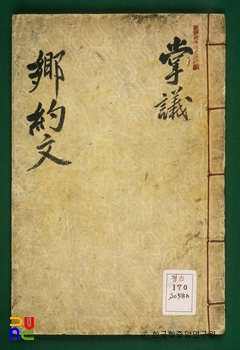 掌議
鄕約文
170
한국학중앙연구원